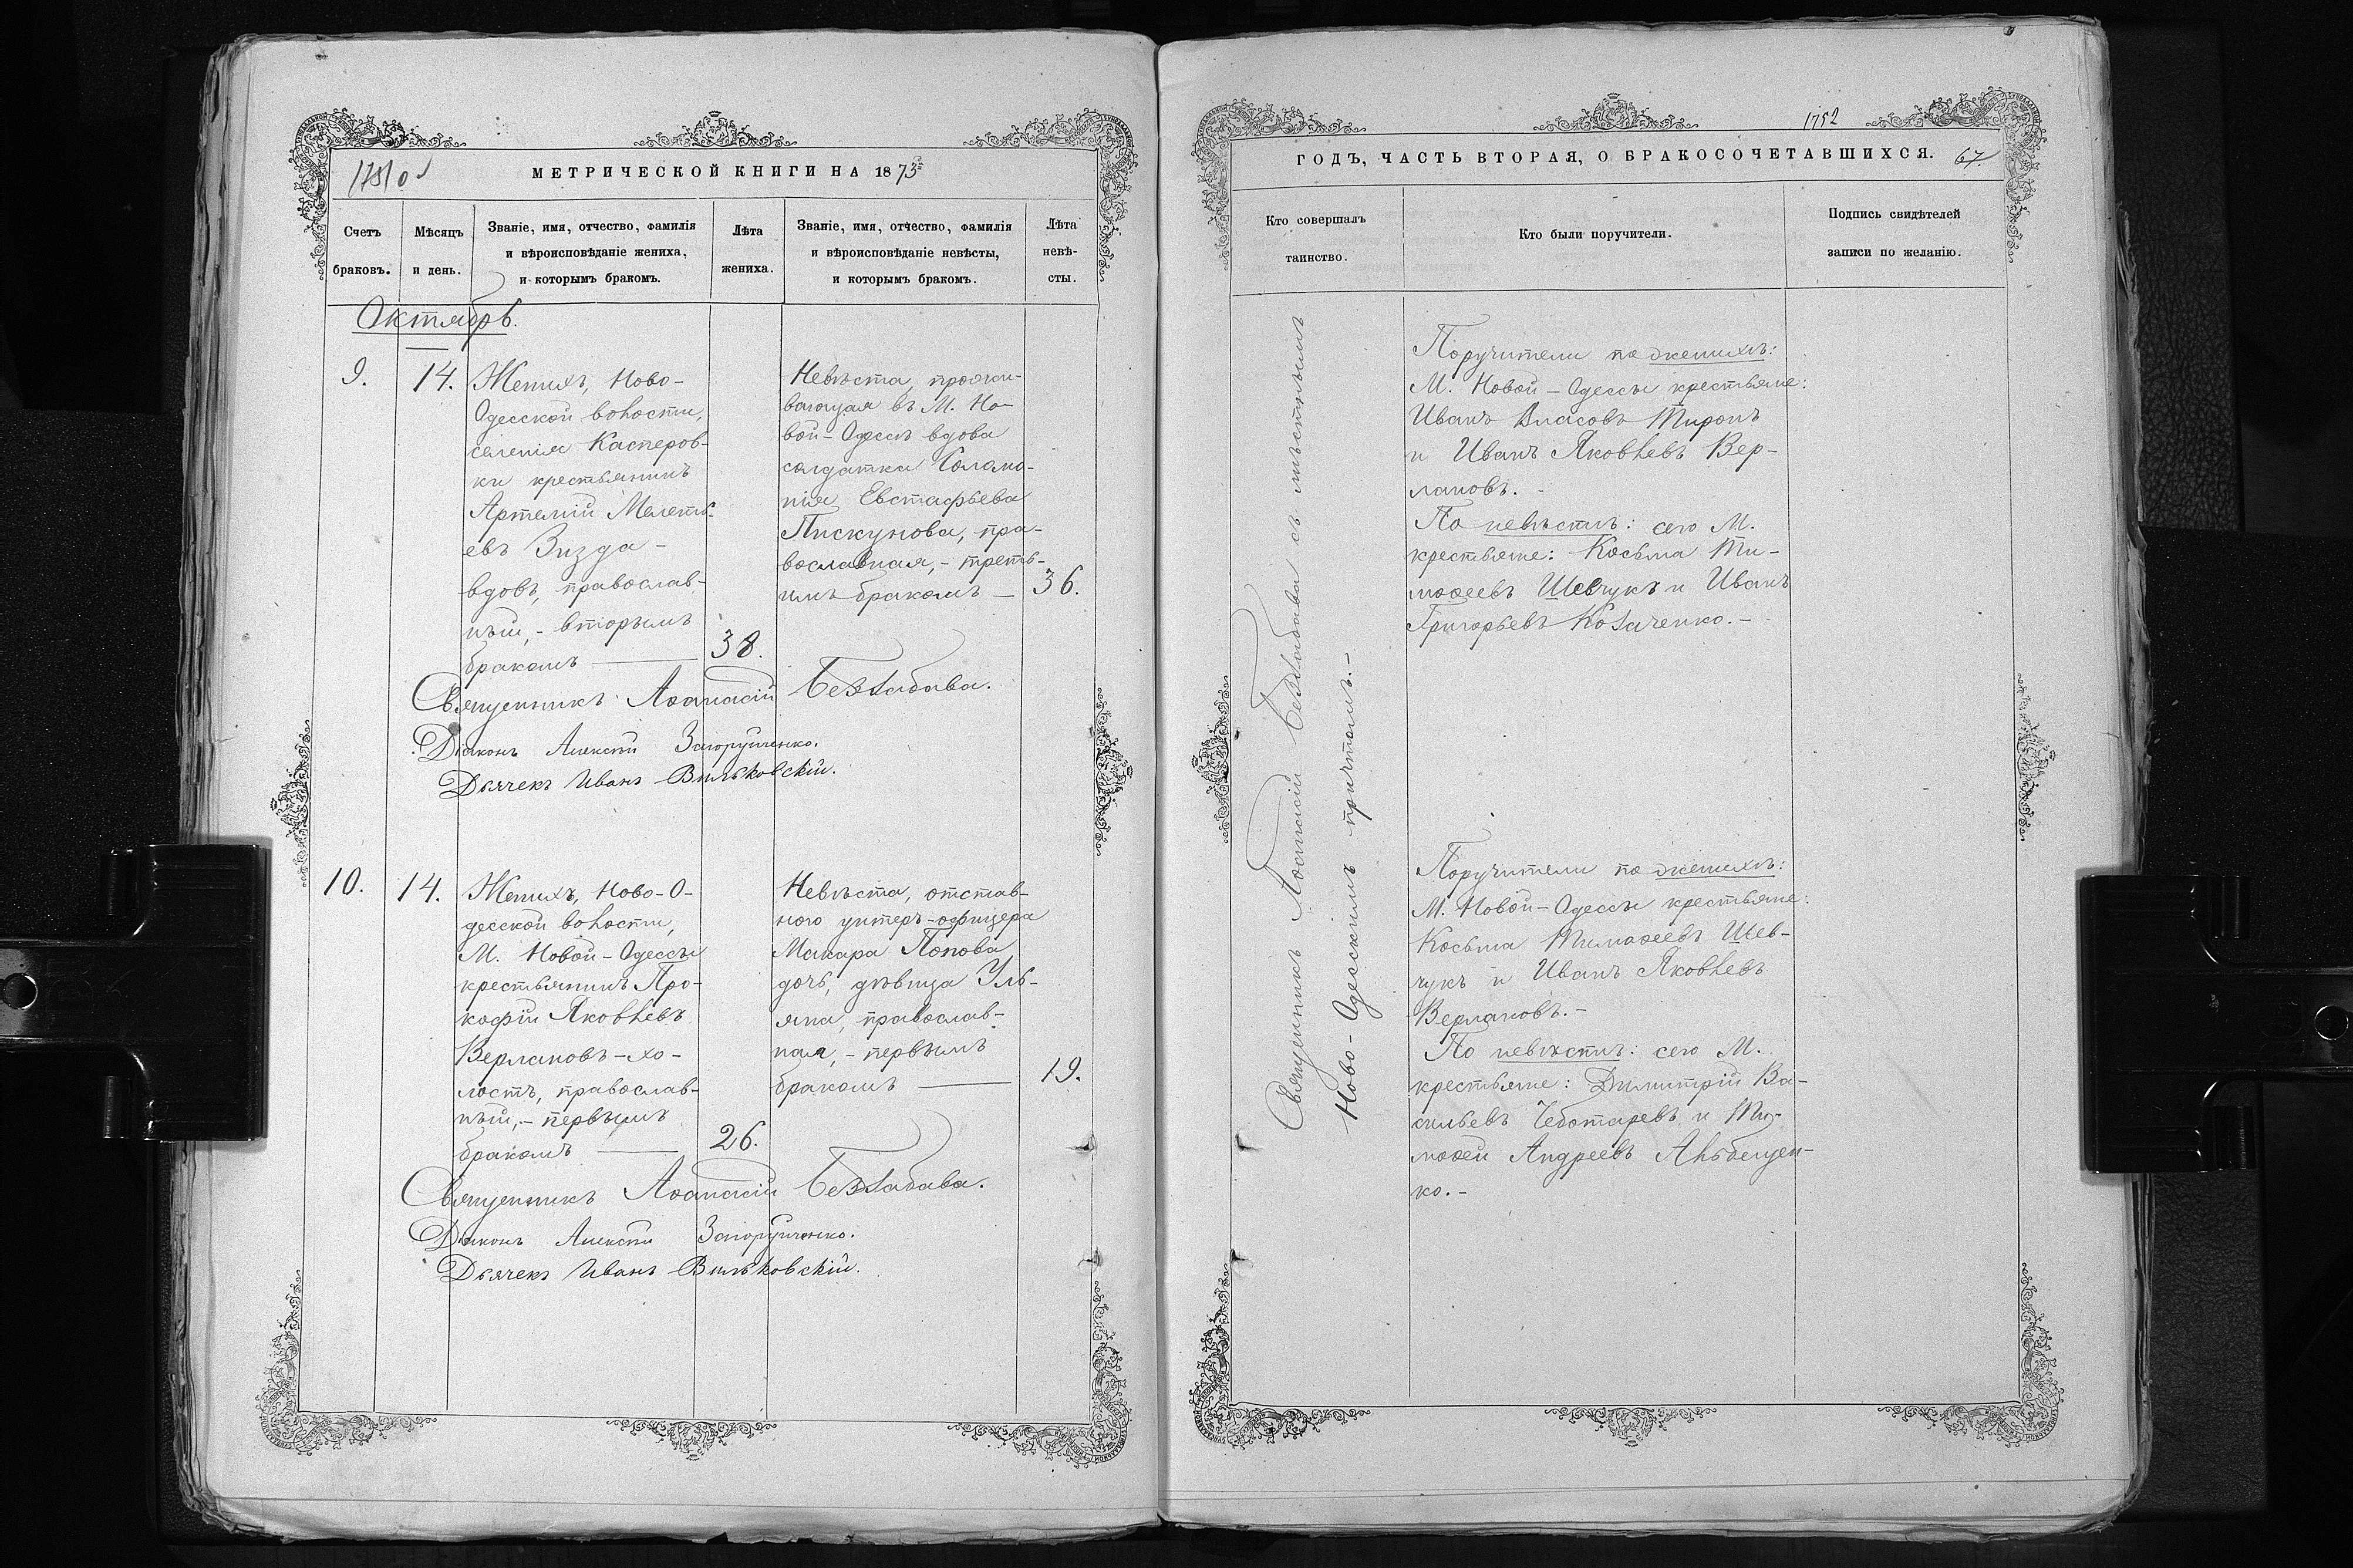 1751 об
МЕТРИЧЕСКОЙ КНИГИ НА 1873
Счетъ браковъ.
Мѣсяцъ и день.
Званіе, имя, отчество, фамилія
и вѣроисповѣданіе жениха,
и которымъ бракомъ.
Лѣта жениха.
Званіе, имя, отчество, фамилія
и вѣроисповѣданіе невѣсты,
и которымъ бракомъ.
Лѣта невѣ-
сты.
Октябрь.
9.
14.
Женихъ, Ново-
Одесской волости,
селенія Касперов-
ки крестьянинъ
Артемій Мелеть-
евъ Зизда -
вдовъ, православ-
ный, - вторымъ
бракомъ —
38.
Невѣста, прожи-
вающая въ М. Но-
вой-Одессѣ вдова
солдатка Соломо-
нія Евстафьева
Пискунова, пра-
вославная, - треть-
имъ бракомъ —
36.
Священникъ Аѳанасій Беззабава.
Діаконъ Алексѣй
Дьячекъ Иванъ Вильковскій.
10.
14.
Женихъ, Ново-О-
десской волости,
М. Новой-Одессы
крестьянинъ Про-
кофій Яковлевъ
Верлановъ - хо-
лостъ, православ-
ный, - первымъ
бракомъ —
26.
Невѣста, отстав-
ного унтеръ-офицера
Макара Попова
дочь, дѣвица Уль-
яна, православ-
ная, - первымъ
бракомъ —
19.
Священникъ Аѳанасій Беззабава.
Діаконъ Алексѣй
Дьячекъ Иванъ Вильковскій.
1752
ГОДЪ, ЧАСТЬ ВТОРАЯ, О БРАКОСОЧЕТАВШИХСЯ.
67.
Кто совершалъ
таинство.
Кто были поручители.
Подпись свидѣтелей
записи по желанію.
Священникъ Аѳанасій Беззабава съ мѣстнымъ
Ново-Одесскимъ причтомъ. -
Поручители по женихѣ:
М. Новой-Одессы крестьяне:
Иванъ Власовъ Миронъ
и Иванъ Яковлевъ Вер-
лановъ. -
По невѣстѣ: сего М.
крестьяне: Косьма Ти-
моѳеевъ Шевчукъ и Иванъ
Григорьевъ Козаченко. -
Поручители по женихѣ:
М. Новой-Одессы крестьяне:
Косьма Тимоѳеевъ Шев-
чукъ и Иванъ Яковлевъ
Верлановъ. -
По невѣстѣ: сего М.
крестьяне: Димитрій Ва-
сильевъ Чеботаревъ и Ти-
моѳей Андреевъ
ко. -